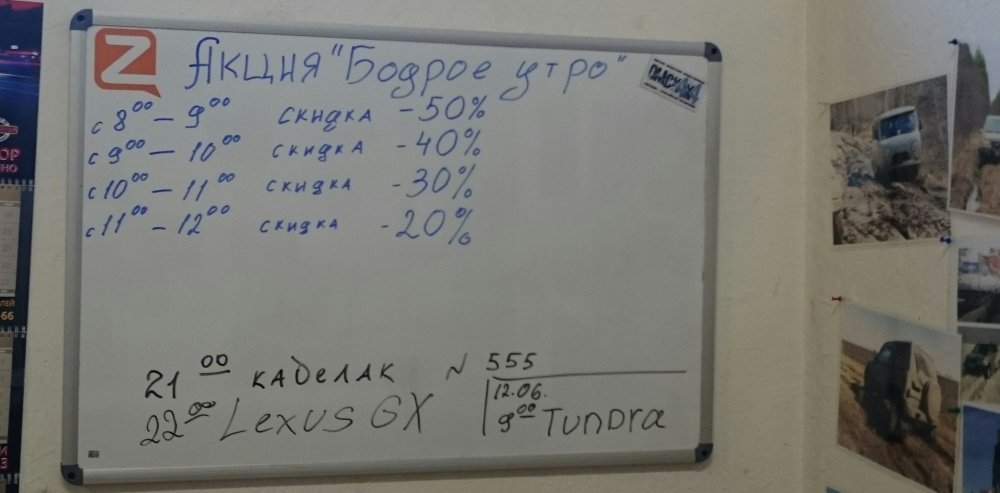 Z
Акция "Бодрое утро"
с 8⁰⁰ – 9⁰⁰ скидка -50%
с 9⁰⁰ – 10⁰⁰ скидка -40%
с 10⁰⁰ – 11⁰⁰ скидка -30%
с 11⁰⁰ – 12⁰⁰ скидка -20%
21⁰⁰ каделак N 555
12.06.
22⁰⁰ Lexus GX
9⁰⁰ Tundra
ОР
ЛЕЙ
66